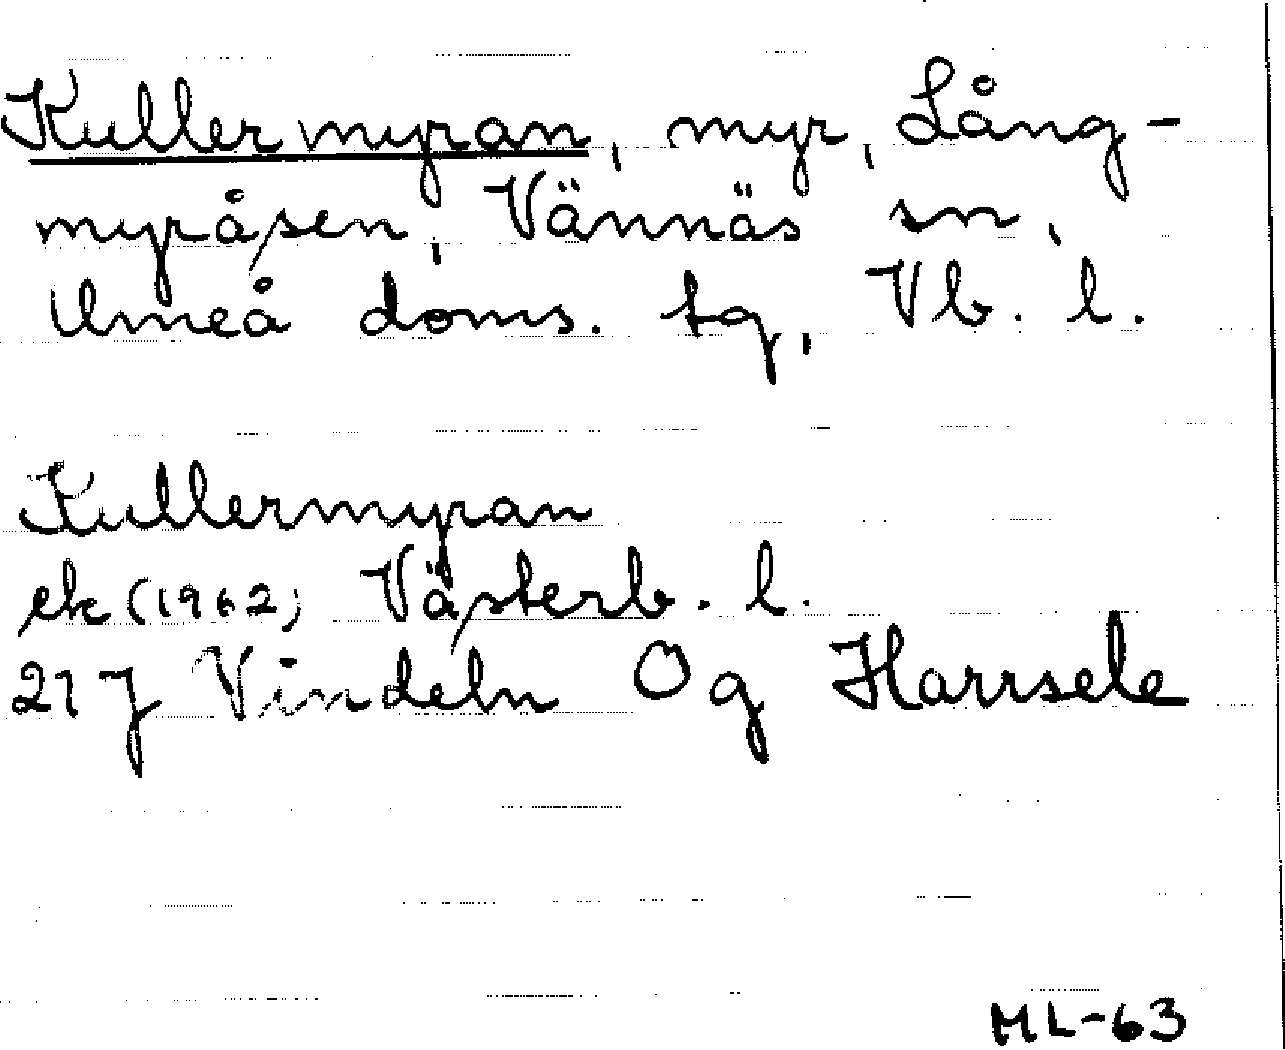 Kullermyran, myr, Lång-
myråsen, Vännäs sn,
Umeå doms. tg, Vb. l.
Kullermyran
ek (1962) Västerb. l.
21 J Vindeln Og Harrsele
ML-63